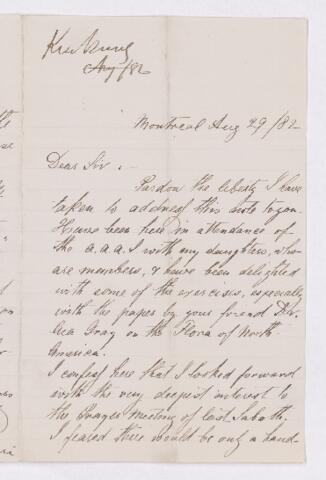 Aug/82
Montreal Aug 29/82
Dear Sir,
Pardon the liberty I have
taken to address this note to you.
Have been here in attendance of
the a.a.a.S with my daughters, who
are members, & have been delighted
with some of the exercises, especially
with the paper by your friend Dr.
Asa Gray on the Flora of North
America.
I confess here that I looked forward
with the very deepest interest to
the Prayer meeting of last Sabath,
I feared there would be only a hand-